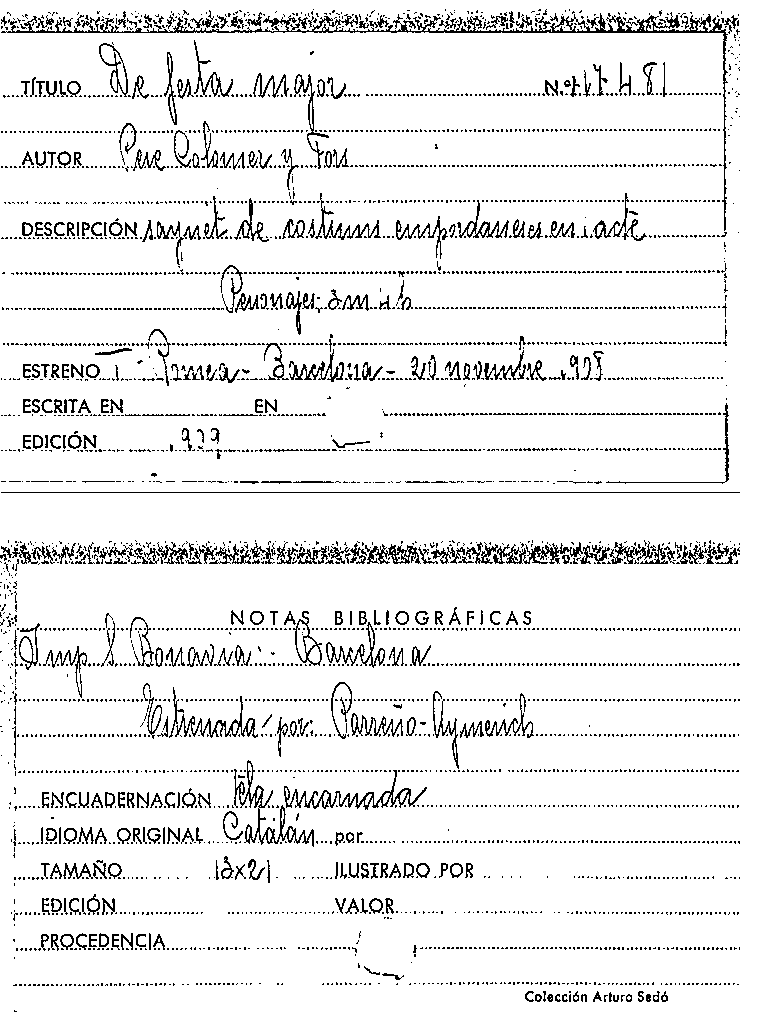 TÍTULO De festa major N.º 17481
AUTOR Pere Colomer y Fors
DESCRIPCIÓN saynet de costums empordaneses en 1 acte
Personajes: 3 m 4 h
ESTRENO T - Romea - Barcelona - 20 novembre 1908
ESCRITA EN EN
EDICIÓN 1909
NOTAS BIBLIOGRÁFICAS
Imp S Bonavia: - Barcelona
Estrenada por: Parreño-Aymerich
ENCUADERNACIÓN tela encarnada
IDIOMA ORIGINAL Catalán por
TAMAÑO 13x21 ILUSTRADO POR
EDICIÓN VALOR
PROCEDENCIA
Colección Arturo Sedó